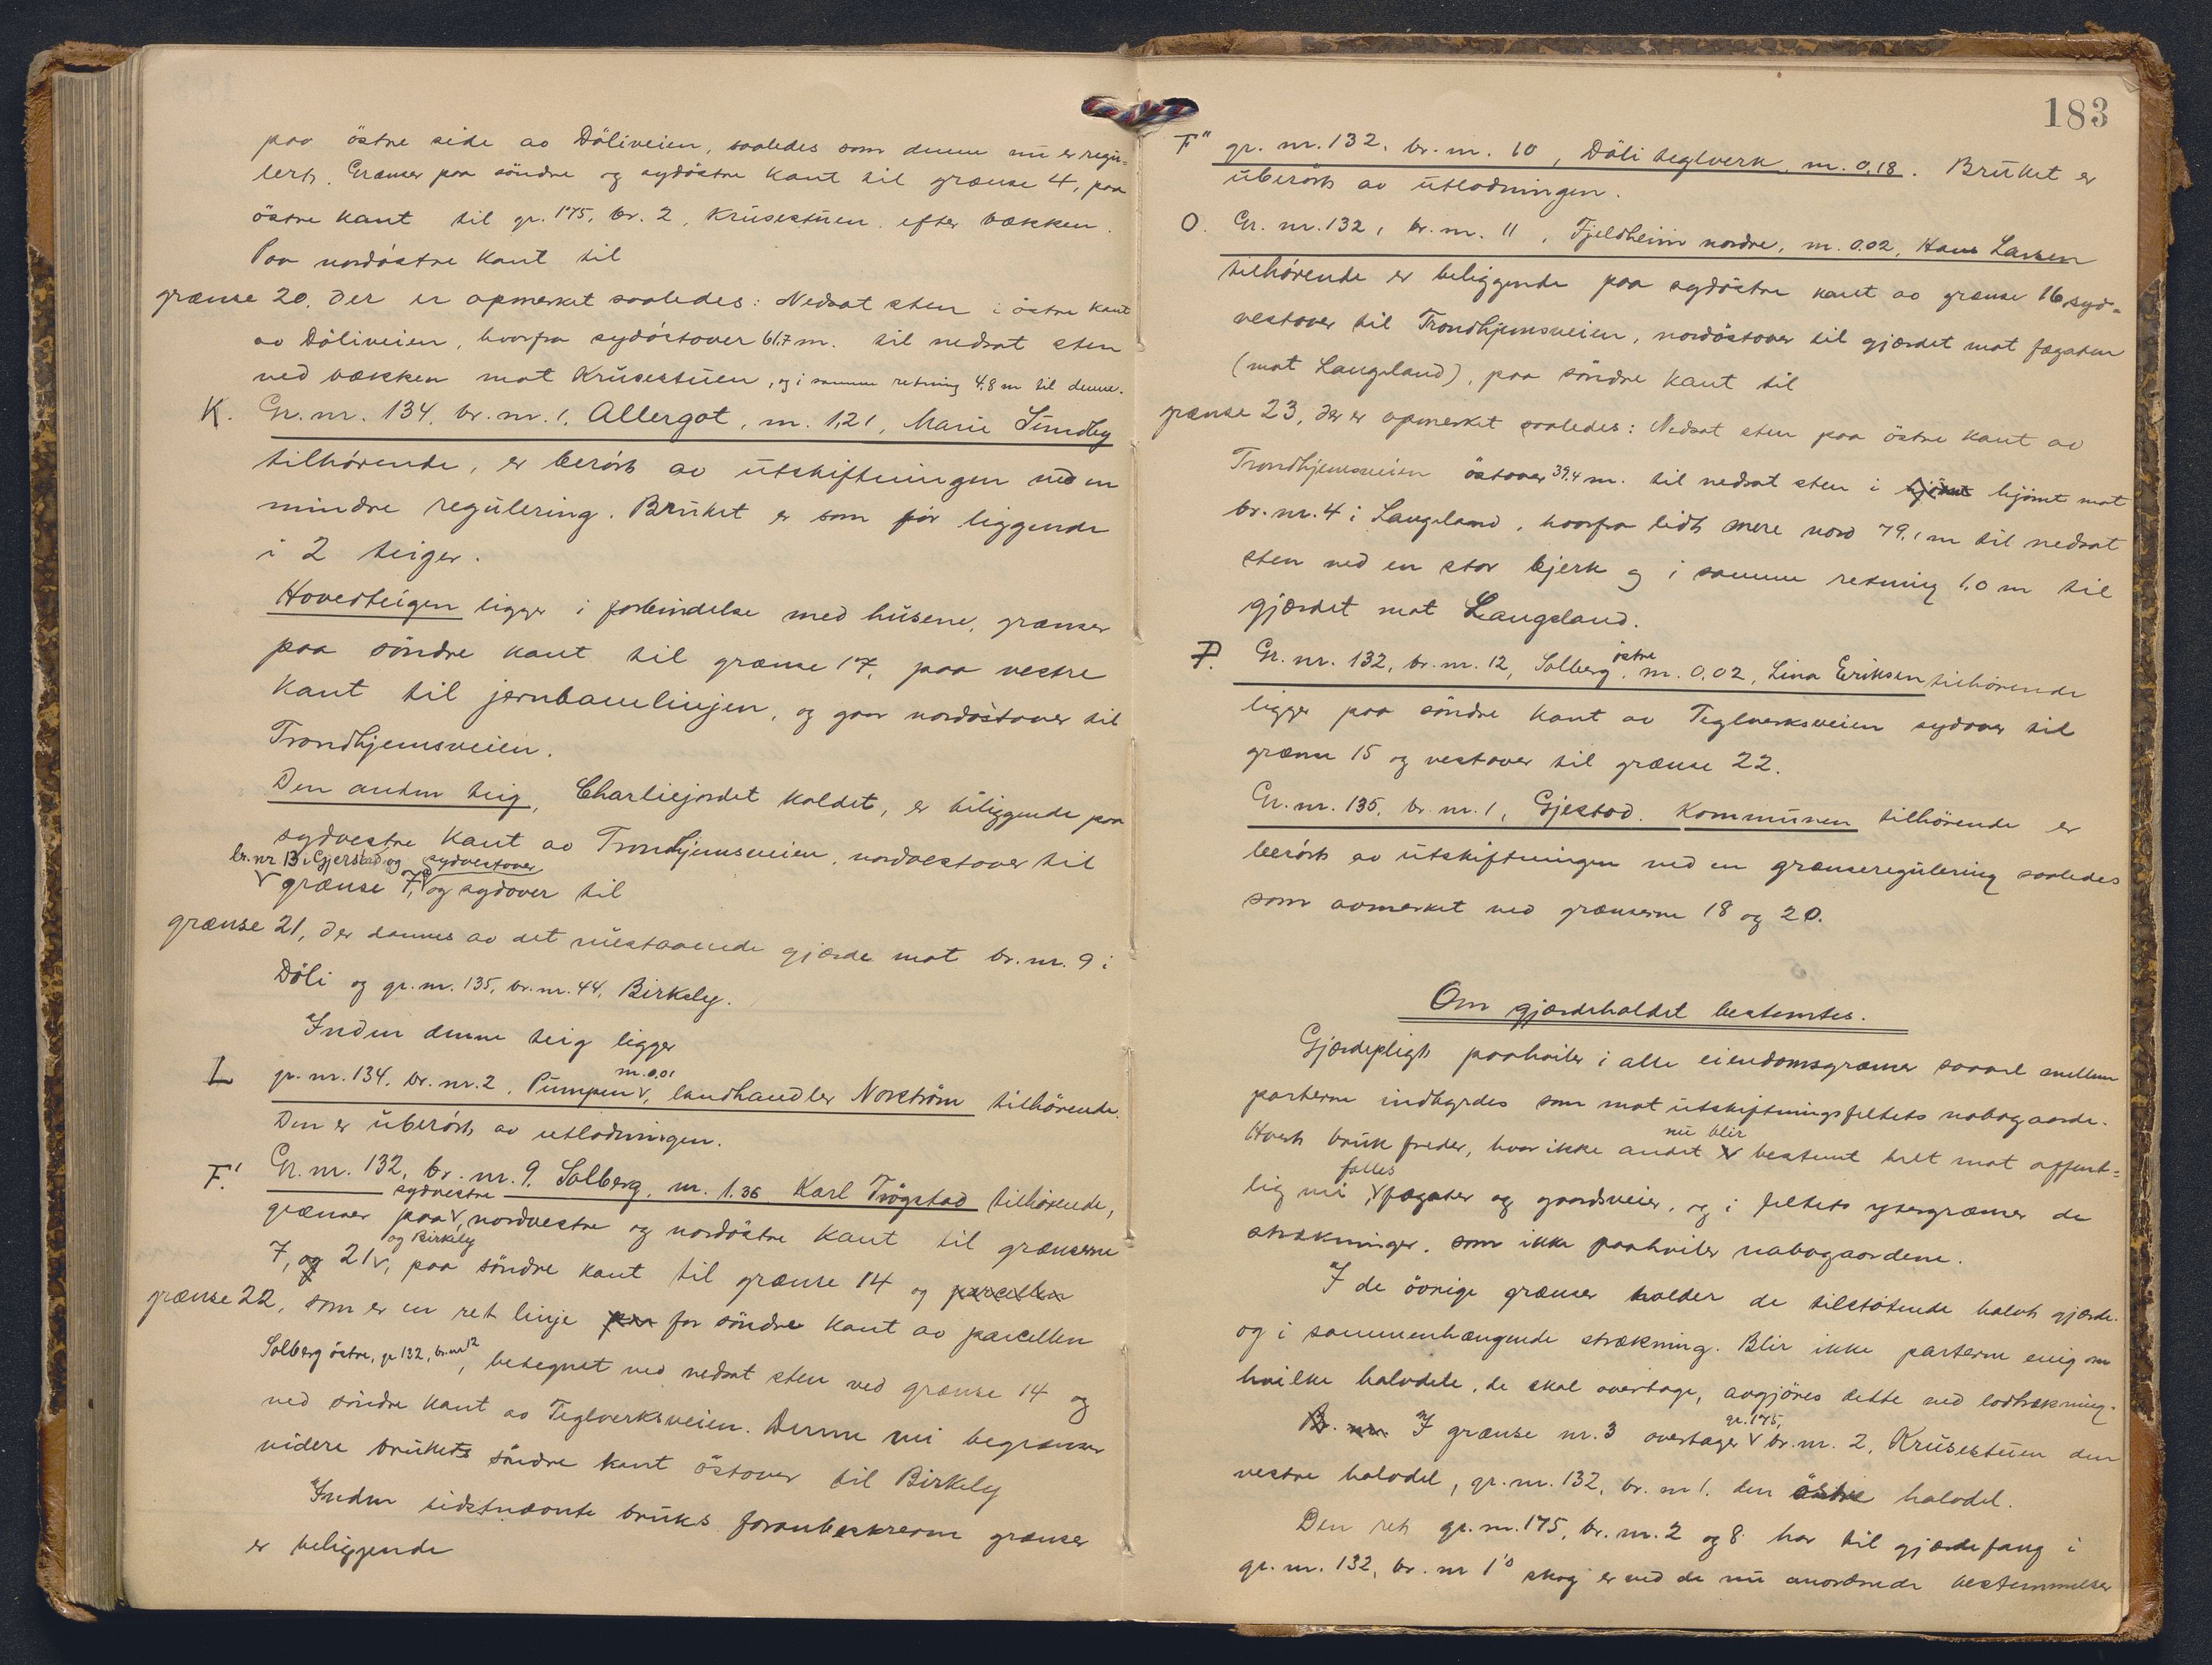 paa östre side av Döliveien, saaledes som denne nu er regu=
lert. Grænser paa söndre og sydöstre kant til grænse 4, paa
östre kant til gr. 175, br. 2, Krusestuen efter bækken.
Paa nordöstre kant til
grænse 20, der er opmerket saaledes: Nedsat sten i östre kant
av Döliveien, hvorfra sydöstover 61,7 m. til nedsat sten
ved bækken mot Krusestuen, og i samme retning 4,8 m til denne.
K. Gr. nr. 134, br. nr. 1, Allergot, m. 1,21, Marie Sundby
tilhörende, er berört av utskiftningen ved en
mindre regulering. Bruket er som för liggende
i 2 teiger.
Hovedteigen ligger i forbindelse med husene, grænser
paa söndre kant til grænse 17, paa vestre
kant til jernbanelinjen, og gaar nordöstover til
Trondhjemsveien.
Den anden teig, Charliejordet kaldet, er biliggende paa
sydvestre kant av Trondhjemsveien, nordvestover til
br. nr 13 i Gjerstad og sydvestover
grænse 7, og sydover til
grænse 21, der dannes av det nuestaaende gjærde mot br. nr. 9 i
Döli og gr. nr. 135, br. nr. 44, Birkely.
Inden denne teig ligger
m. 0,01
L gr. nr. 134, br. nr. 2, Pumpen, landhandler Norström tilhörende.
Den er uberört av utlodningen.
F.' Gr. nr. 132, br. nr. 9, Solberg, m. 1.36 Karl Trögstad tilhörende,
sydvestre
grænser paa, nordvestre og nordöstre kant til grænserne
og Birkely
7, og 21, paa söndre kant til grænse 14 og parcellen
grænse 22, som er en ret linje paa for söndre kant av parcellen
Solberg östre, gr 132, br. nr 12, betegnet ved nedsat sten ved grænse 14 og
ved söndre kant av Teglverksveien. Denne vei begrænser
videre brukets söndre kant östover til Birkely
Inden sidstnævnte bruks foranbeskrevne grænser
er beliggende
183
F" gr. nr. 132, br. nr. 10, Döli teglverk, m. 0,18. Bruket er
uberört av utlodningen.
O. Gr. nr. 132, br. nr. 11, Fjeldheim nordre, m. 0.02, Hans Larsen
tilhörende er beliggende paa sydöstre kant av grænse 16, syd=
vestover til Trondhjemsveien, nordöstover til gjærdet mot fægaten
(mot Langeland), paa söndre kant til
grænse 23, der er opmerket saaledes: Nedsat sten paa östre kant av
Trondhjemsveien östover 39,4 m. til nedsat sten i hjörnt hjörnt mot
br. nr. 4 i Langeland, hvorfra lidt mere nord 79,1 m til nedsat
sten ved en stor bjerk og i samme retning 1,0 m til
gjærdet mot Langeland.
östre
P. Gr. nr. 132, br. nr. 12, Solberg, m. 0,02, Lina Eriksen tilhörende
ligger paa söndre kant av Teglverksveien sydover til
grænse 15 og vestover til grænse 22.
Gr. nr. 135, br. nr. 1, Gjestad. Kommunen tilhörende er
berört av utskiftningen ved en grænseregulering saaledes
som avmerket ved grænserne 18 og 20.
Om gjærdeholdet bestemtes.
Gjærdepligt paahviler i alle eiendomsgrænser saavel mellem
parterne indbyrdes som mot utskiftningsfeltets nabogaarde.
nu blir
Hvert bruk freder, hvor ikke andet er bestemt helt mot offent=
fælles
lig vei, fægater og gaardsveier, og i feltets ytergrænser de
strækninger, som ikke paahviler nabogaardene.
I de övrige grænser holder de tilstötende halvt gjærde.
og i sammenhængende strækning. Blir ikke parterne enig om
hvilke halvdele, de skal overtage, avgjöres dette ved lodtrækning.
gr. 175,
B. nr. I grænse nr. 3 overtager br. nr. 2, Krusestuen den
vestre halvdel, gr. nr. 132, br. nr 1. den östre halvdel.
Den ret gr. nr. 175, br. nr. 2 og 8 har til gjærdefang i
gr. nr. 132, br. nr 1's skog er ved de nu anordnede bestemmelser